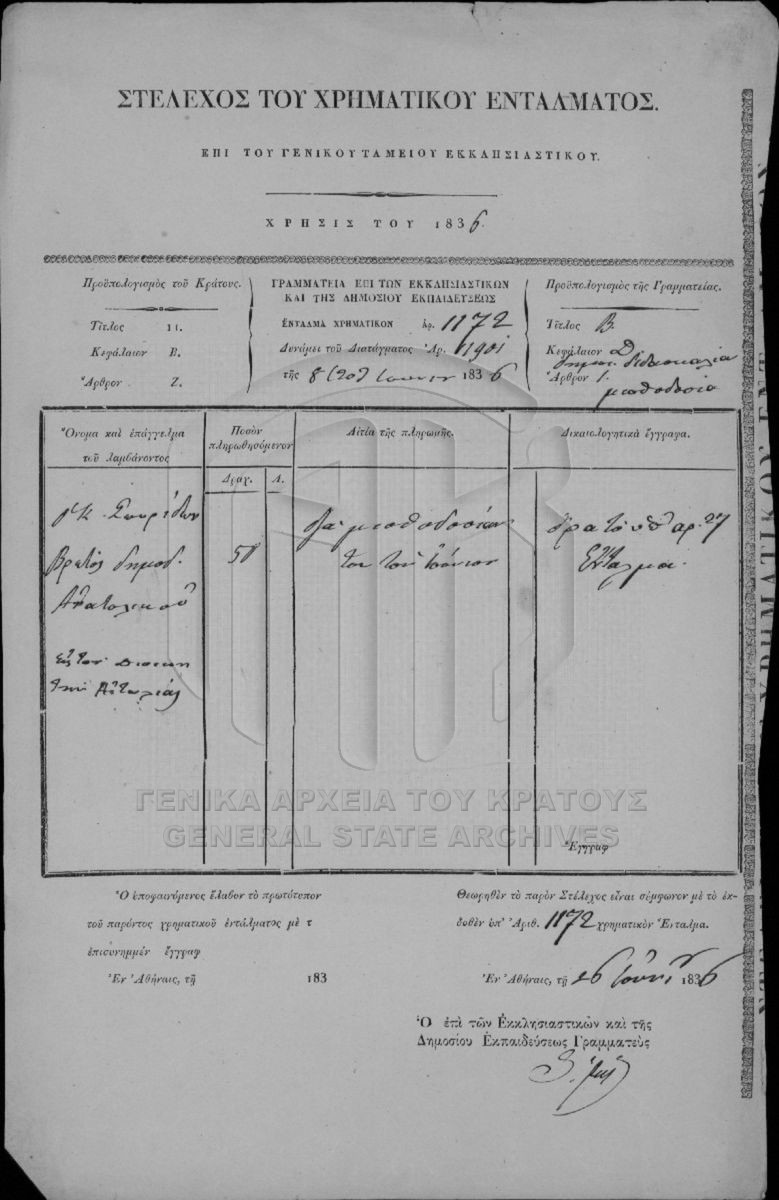 ΣΤΕΛΕΧΟΣ ΤΟΥ ΧΡΗΜΑΤΙΚΟΥ ΕΝΤΑΛΜΑΤΟΣ.
ΕΠΙ ΤΟΥ ΓΕΝΙΚΟΥ ΤΑΜΕΙΟΥ ΕΚΚΛΗΣΙΑΣΤΙΚΟΥ.
ΧΡΗΣΙΣ ΤΟΥ 1836.
Προϋπολογισμὸς τοῦ Κράτους.
Τίτλος II.
Κεφάλαιον Β.
Ἄρθρον 2.
ΓΡΑΜΜΑΤΕΙΑ ΕΠΙ ΤΩΝ ΕΚΚΛΗΣΙΑΣΤΙΚΩΝ
ΚΑΙ ΤΗΣ ΔΗΜΟΣΙΟΥ ΕΚΠΑΙΔΕΥΣΕΩΣ
ΕΝΤΑΛΜΑ ΧΡΗΜΑΤΙΚΟΝ ἀρ. 1172
Δυνάμει τοῦ Διατάγματος Ἀρ. 11901
τῆς 8 (20) Ἰουνίου 1836
Προϋπολογισμὸς τῆς Γραμματείας.
Τίτλος Β.
Κεφάλαιον Δ
δημοτ. διδασκαλία
Ἄρθρον 1.
μισθοδοσία
Ὄνομα καὶ ἐπάγγελμα
τοῦ λαμβάνοντος
Ποσὸν
πληρωθησόμενον
Δραχ. Λ.
Αἰτία τῆς πληρωμῆς.
Δικαιολογητικὰ ἔγγραφα.
Ὁ Κ. Σπυρίδων
δημοδ.
50
διὰ μισθοδοσίαν
του τοῦ Ἰούνιον
ὅρα τὸ ὑπ' ἀρ.
Ἔνταλμα.
εἰς τὸν
τῆς Αἰτωλίας
Ἔγγραφ
Ὁ ὑποφαινόμενος ἔλαβον τὸ πρωτότυπον
τοῦ παρόντος χρηματικοῦ ἐντάλματος μὲ τ
ἐπισυνημμέν ἔγγραφ
Ἐν Ἀθήναις, τῇ 183
Θεωρηθὲν τὸ παρὸν Στέλεχος εἶναι σύμφωνον μὲ τὸ ἐκ-
δοθὲν ὑπ' Ἀριθ. 1172 χρηματικὸν Ἔνταλμα.
Ἐν Ἀθήναις, τῇ 26 Ἰουνίου 1836
Ὁ ἐπὶ τῶν Ἐκκλησιαστικῶν καὶ τῆς
Δημοσίου Ἐκπαιδεύσεως Γραμματεὺς
ΓΕΝΙΚΑ ΑΡΧΕΙΑ ΤΟΥ ΚΡΑΤΟΥΣ
GENERAL STATE ARCHIVES